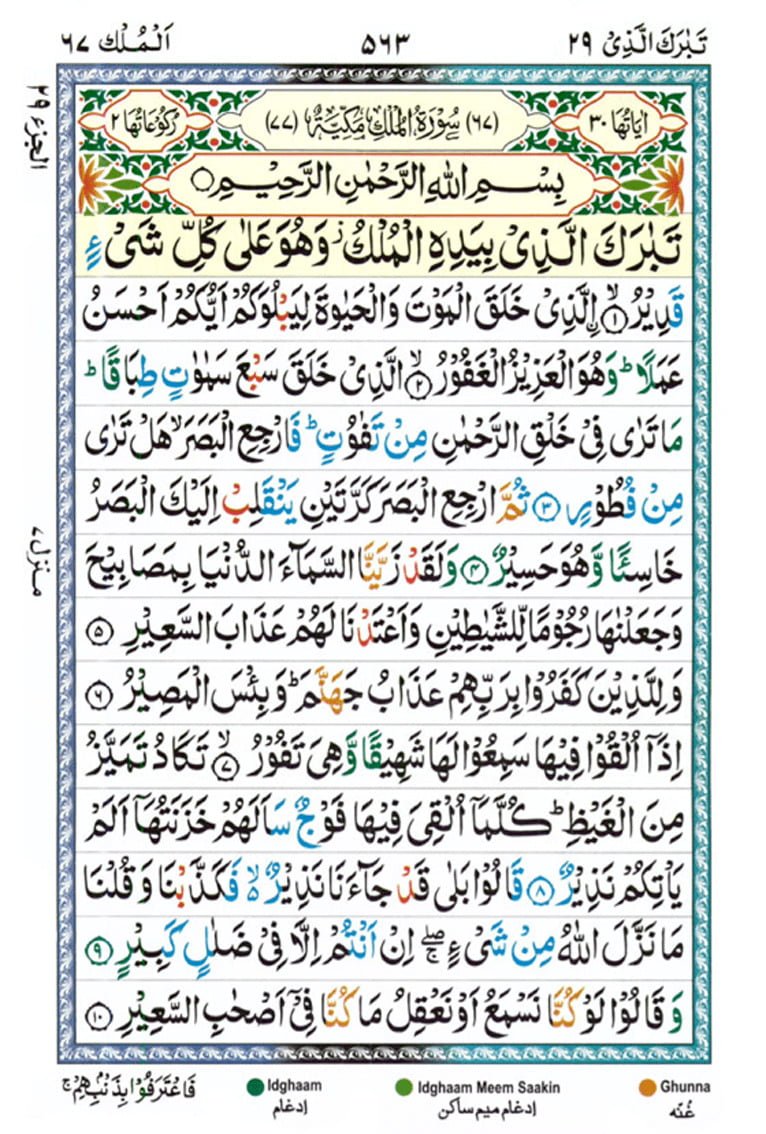 تَبٰرَكَ الَّذِیْ ۲۹
۵۶۳
اَلْمُلْك ۶۷
اٰیَاتُهَا ۳۰
(۶۷) سُوْرَةُ الْمُلْكِ مَكِّیَّةٌ (۷۷)
رُكُوْعَاتُهَا ۲
الجزء ۲۹
بِسْمِ اللهِ الرَّحْمٰنِ الرَّحِیْمِ
تَبٰرَكَ الَّذِیْ بِیَدِهِ الْمُلْكُ ز وَهُوَ عَلٰی كُلِّ شَیْءٍ
قَدِیْرُ ۙ﴿۱﴾ اِۨلَّذِیْ خَلَقَ الْمَوْتَ وَالْحَیٰوةَ لِیَبْلُوَكُمْ اَیُّكُمْ اَحْسَنُ
عَمَلًا ؕ وَهُوَ الْعَزِیْزُ الْغَفُوْرُ ۙ﴿۲﴾ الَّذِیْ خَلَقَ سَبْعَ سَمٰوٰتٍ طِبَاقًا ؕ
مَا تَرٰی فِیْ خَلْقِ الرَّحْمٰنِ مِنْ تَفٰوُتٍ ؕ فَارْجِعِ الْبَصَرَ ۙ هَلْ تَرٰی
مِنْ فُطُوْرٍ ﴿۳﴾ ثُمَّ ارْجِعِ الْبَصَرَ كَرَّتَیْنِ یَنْقَلِبْ اِلَیْكَ الْبَصَرُ
خَاسِئًا وَّ هُوَ حَسِیْرٌ ﴿۴﴾ وَلَقَدْ زَیَّنَّا السَّمَآءَ الدُّنْیَا بِمَصَابِیْحَ
وَجَعَلْنٰهَا رُجُوْمًا لِّلشَّیٰطِیْنِ وَاَعْتَدْنَا لَهُمْ عَذَابَ السَّعِیْرِ ﴿۵﴾
وَلِلَّذِیْنَ كَفَرُوْا بِرَبِّهِمْ عَذَابُ جَهَنَّمَ ؕ وَبِئْسَ الْمَصِیْرُ ﴿۶﴾
اِذَاۤ اُلْقُوْا فِیْهَا سَمِعُوْا لَهَا شَهِیْقًا وَّهِیَ تَفُوْرُ ۙ﴿۷﴾ تَكَادُ تَمَیَّزُ
مِنَ الْغَیْظِ ؕ كُلَّمَاۤ اُلْقِیَ فِیْهَا فَوْجٌ سَاَلَهُمْ خَزَنَتُهَاۤ اَلَمْ
یَاْتِكُمْ نَذِیْرٌ ﴿۸﴾ قَالُوْا بَلٰی قَدْ جَآءَنَا نَذِیْرٌ ۙ۬ فَكَذَّبْنَا وَقُلْنَا
مَا نَزَّلَ اللهُ مِنْ شَیْءٍ ۚۖ اِنْ اَنْتُمْ اِلَّا فِیْ ضَلٰلٍ كَبِیْرٍ ﴿۹﴾
وَقَالُوْا لَوْ كُنَّا نَسْمَعُ اَوْ نَعْقِلُ مَا كُنَّا فِیْۤ اَصْحٰبِ السَّعِیْرِ ﴿۱۰﴾
منزل ۷
فَاعْتَرَفُوْا بِذَنْۢبِهِمْ ۚ
Idghaam
ادغام
Idghaam Meem Saakin
ادغام میم ساکن
Ghunna
غُنّه